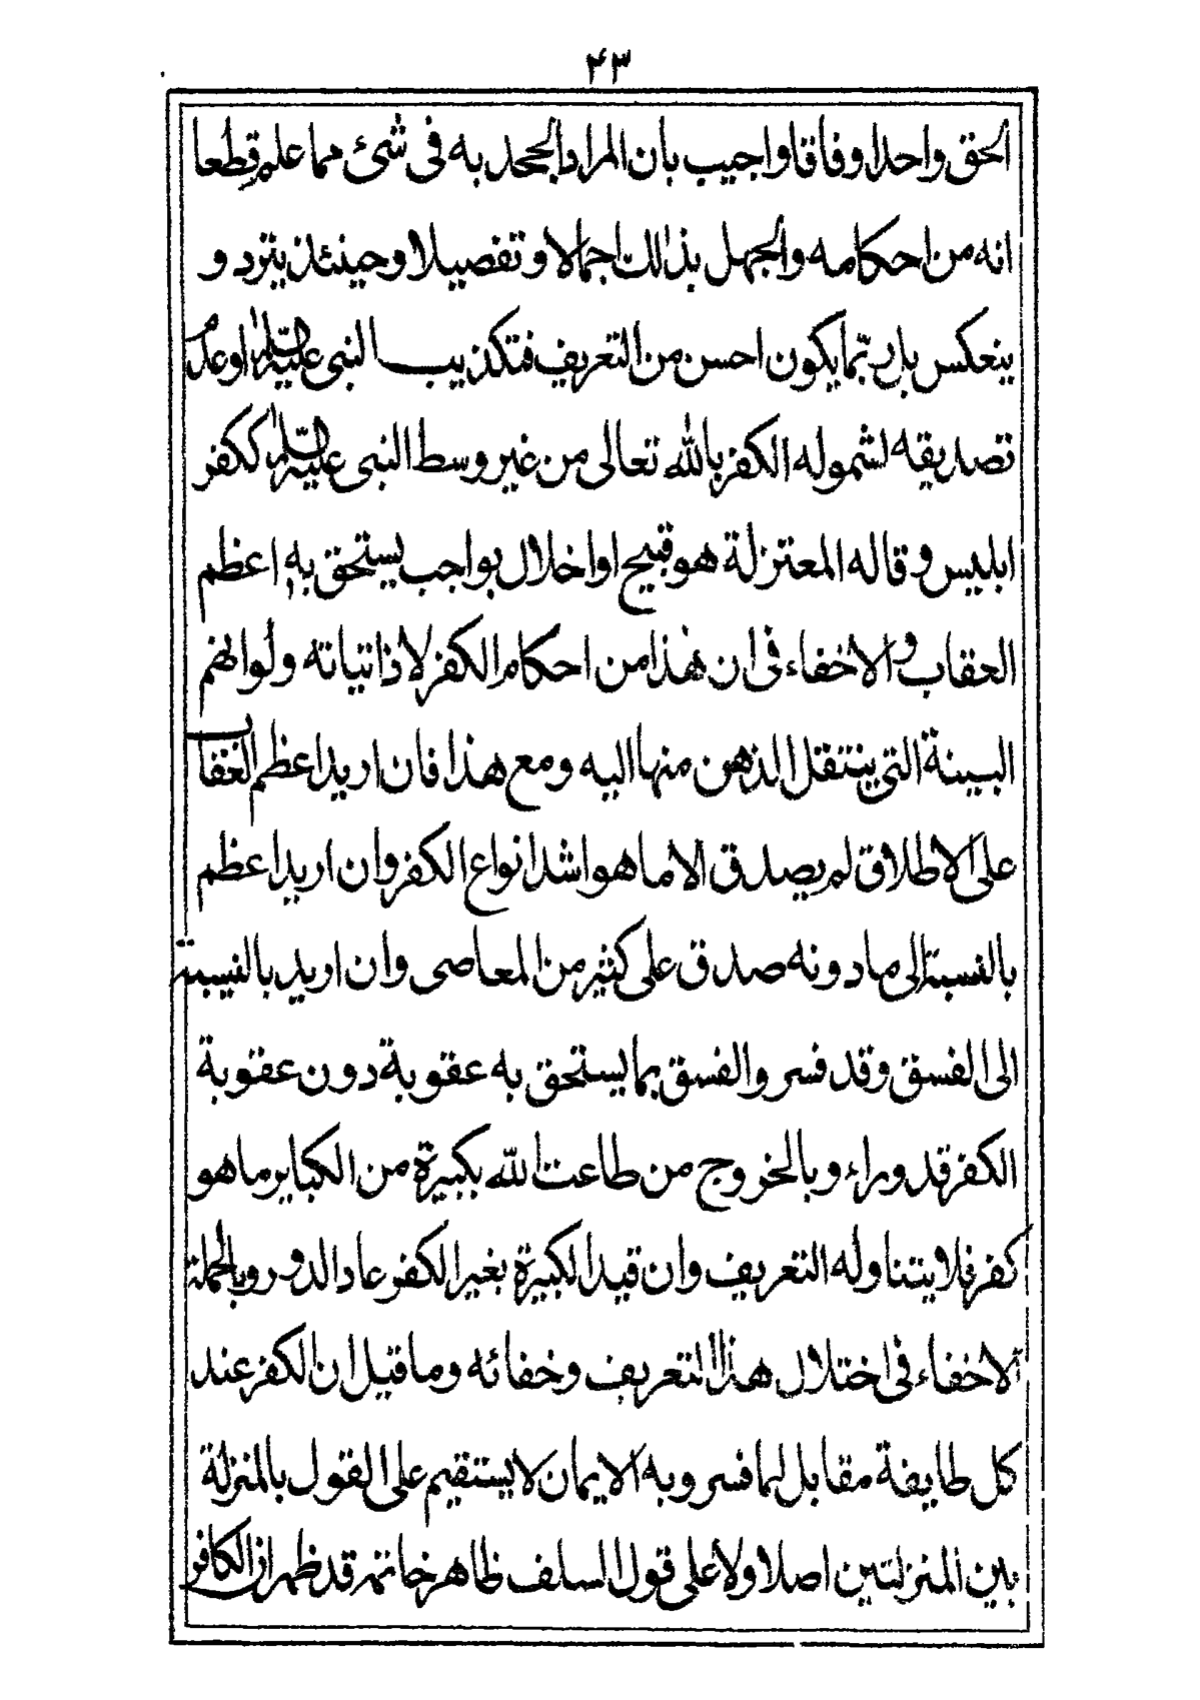 ۴۳
الحق واحدا وفاقا واجيب بان المراد الجحد به فى شئ مما علم قطعا
انه من احكامه والجهل بذالك اجمالا وتفصيلا وحينئذ يتزد و
ينعكس بل ربما يكون احسن من التعريف فتكذيب النبى عليه السلام اوعدم
تصديقه لشموله الكفر بالله تعالى من غير وسط النبى عليه السلام ككفر
ابليس وقاله المعتزلة هو قبيح اواخلال بواجب يستحق به اعظم
العقاب والاخفاء فى ان هذا من احكام الكفر لا ذاتياته ولوانهم
البينة التى ينتقل الذهن منها اليه ومع هذا فان اريد اعظم العقاب
على الاطلاق لم يصدق الا ما هو اشد انواع الكفر وان اريد اعظم
بالنسبة الى ما دونه صدق على كثير من المعاصى وان اريد بالنسبة
الى الفسق وقد فسر والفسق بما يستحق به عقوبة دون عقوبة
الكفر قدوراء وبالخروج من طاعت الله بكبيرة من الكباير ما هو
كفر فلا يتناوله التعريف وان قيد الكبيرة بغير الكفر عاد الدور وبالجملة
الاخفاء فى اختلال هذا التعريف وخفائه وما قيل ان الكفر عند
كل طايفة مقابل لما فسر وبه الايمان لا يستقيم على القول بالمنزلة
بين المنزلتين اصلا ولا على قول السلف ظاهر خاتمة قد ظهر ان الكافر